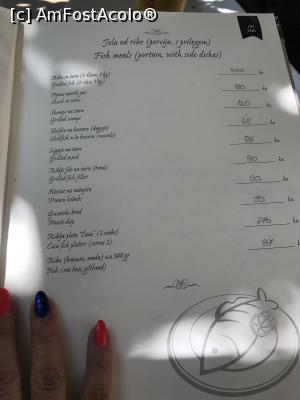 [c] AmFostAcolo®
Jela od ribe (porcija, s prilogom)
Fish meals (portion, with side dishes)
Riba in zara (1. klasa, 1 kg)
Grilled fish (1. class, 1 kg)
400 kn
Shark in wine
80 kn
Škampi na žaru
Grilled scampi
120 kn
Školjke na buzaru (dagnje)
Shellfish a la buzara (mussels)
65 kn
Lignje na žaru
Grilled squid
85 kn
Riblji file na žaru (tuna)
Grilled fish fillet
80 kn
Kozice na ražnjiću
Prawn kebab
90 kn
Gusarski brod
Pirate ship
90 kn
Riblja plata "Ćaća" (2 osobe)
Ćaća fish platter (serves 2)
270 kn
Riba (brancin, orada) cca 300 gr
Fish (sea bass, gilthead)
87 kn